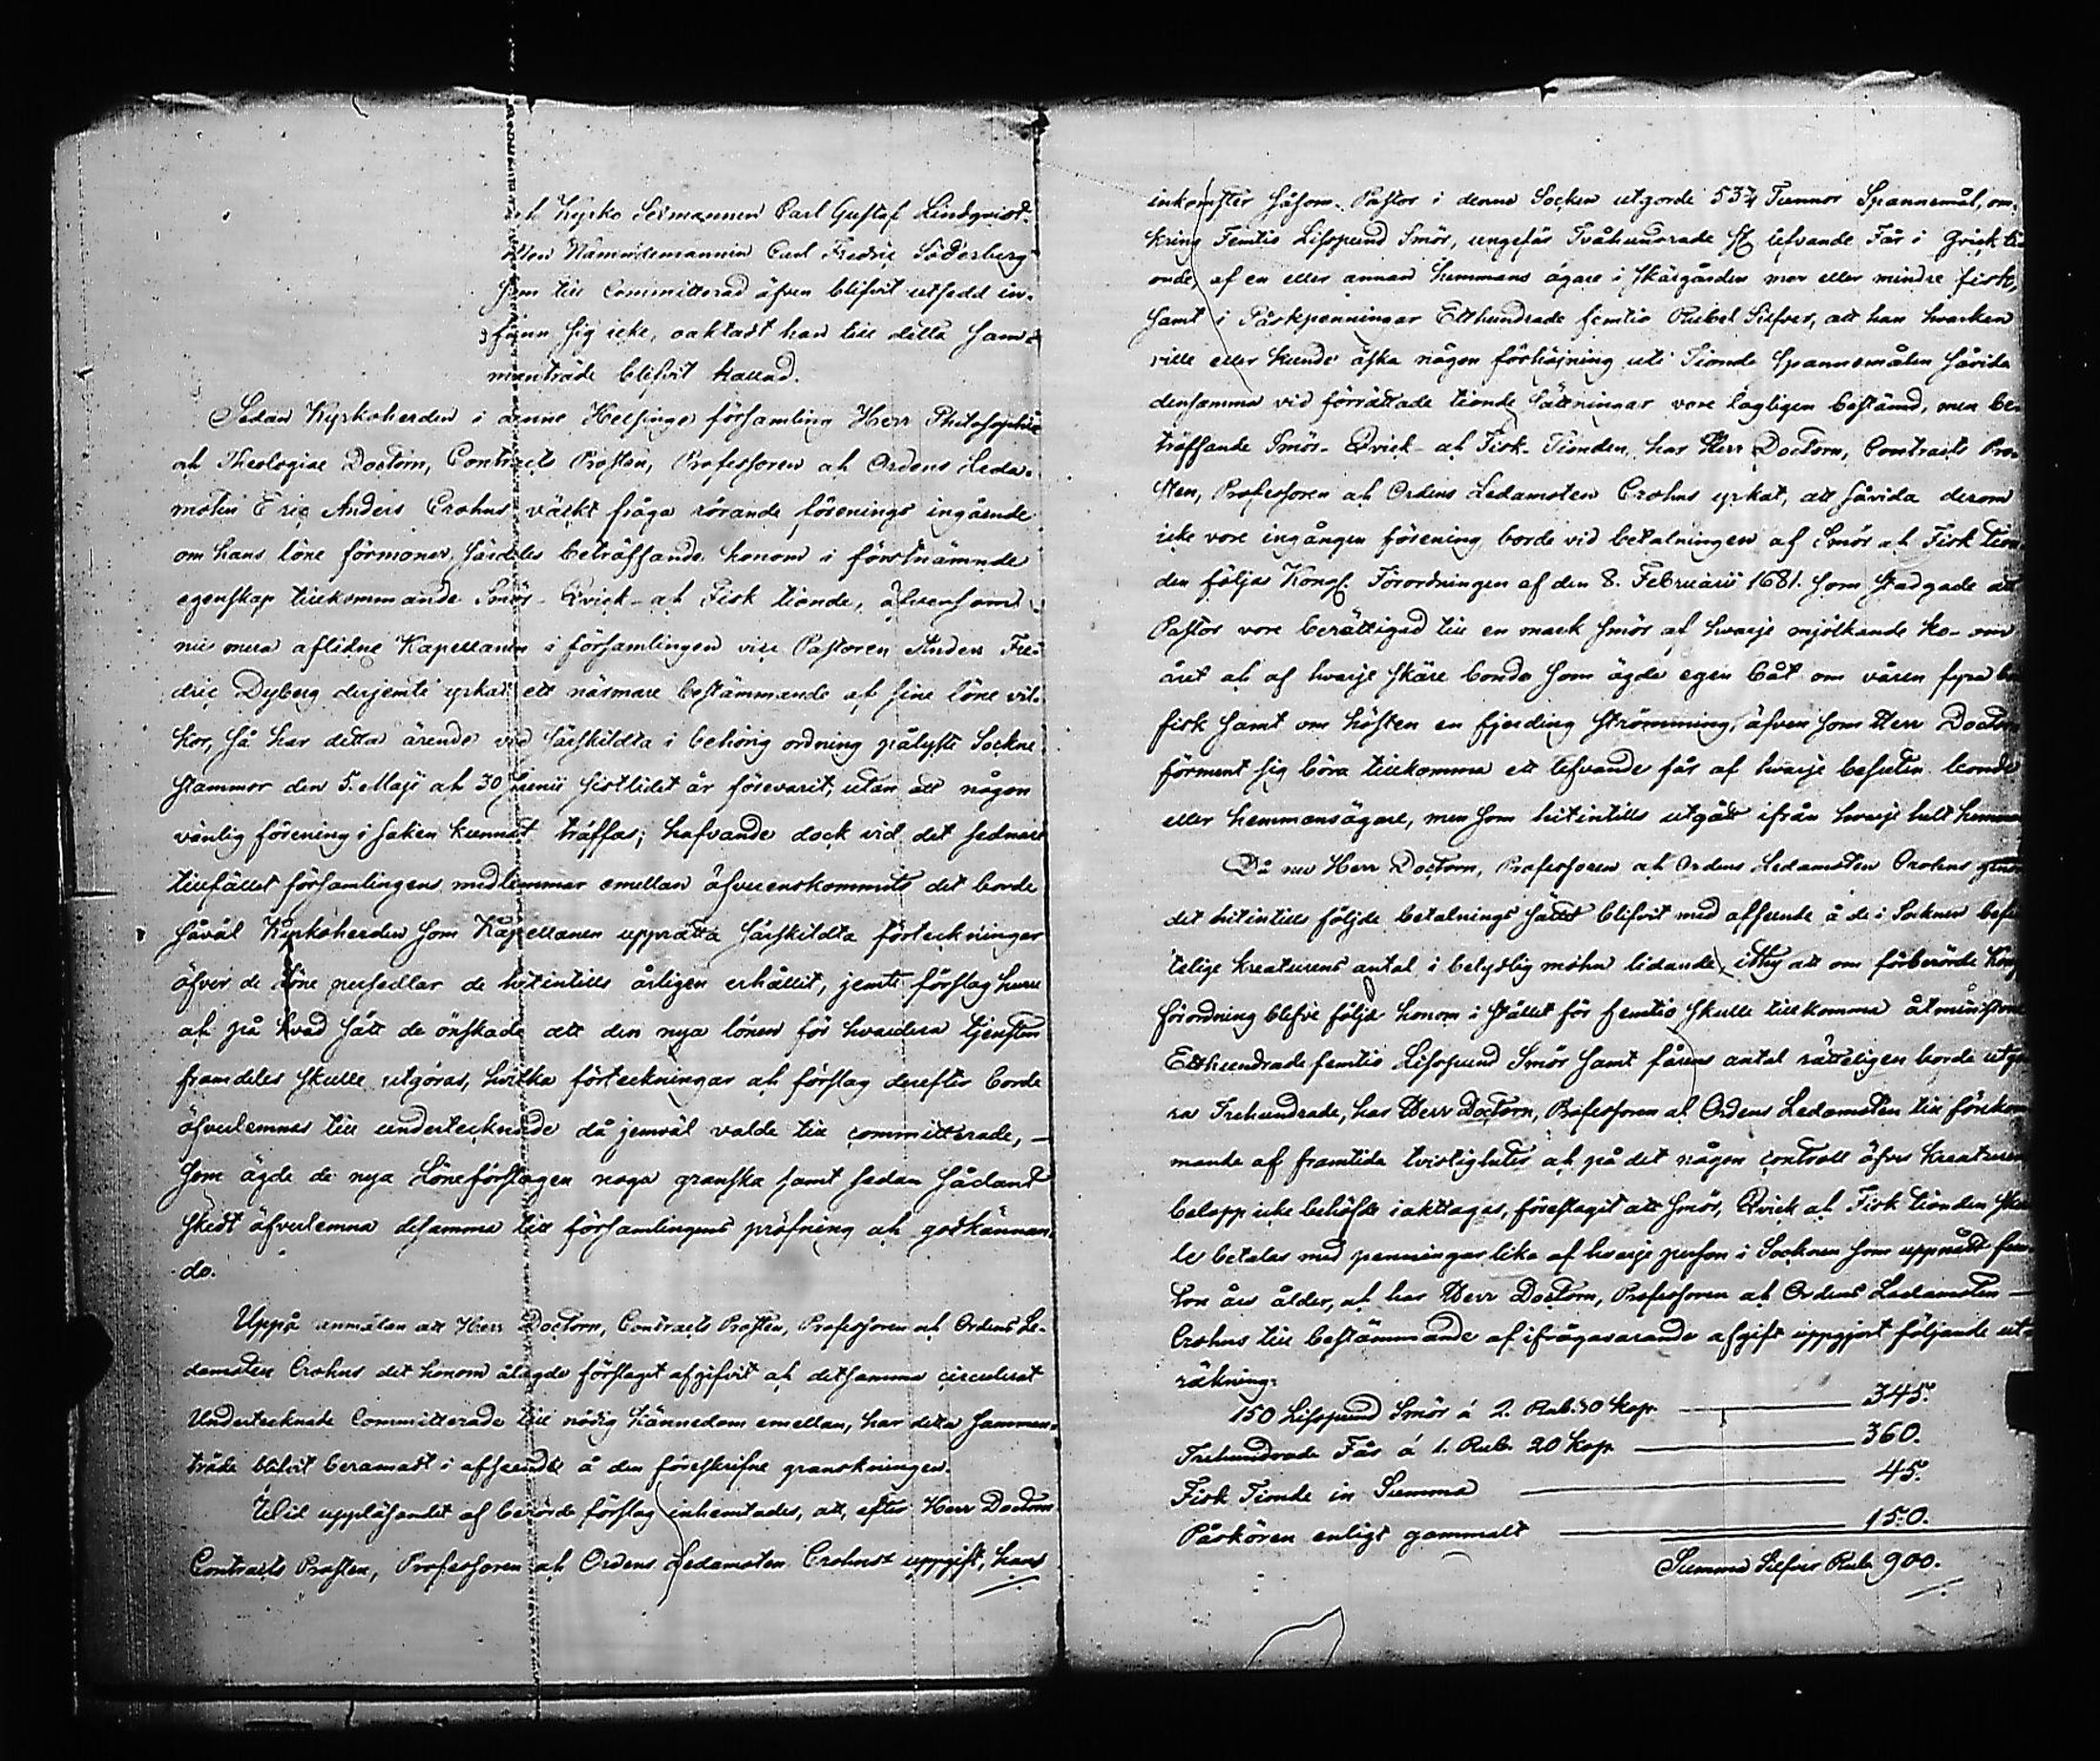 och Kyrko Sexmannen Carl Gustaf Lindqvist.
Men Nämndemannen Carl Fredric Söderberg
som till Committerad äfven blifvit utsedd in-
fann sig icke, oaktadt han till detta sam-
manträde blifvit kallad.
Sedan Kyrkoherden i denne Helsinge församling Herr Philosophiæ
och Theologiae Doctorn, Contracts Prosten, Professoren och Ordens Leda-
moten Eric Anders Crohns väckt fråga rörande förenings ingående
om hans löne förmoner, särdeles beträffande honom i förstnämnde
egenskap tillkommande Smör- Qvick- och Fisk tionde, äfvensom
nu mera aflidne Kapellanen i församlingen vice Pastoren Anders Fre-
dric Dyberg derjemte yrkat ett närmare bestämmande af sine löne vil-
kor, så har detta ärende vid särskildta i behörig ordning pålyste Sockne
stammor den 5. Maji och 30 Junii sistlidet år förevarit, utan att någon
vänlig förening i saken kunnat träffas; hafvande dock vid det sednare
tillfället församlingens medlemmar emellan öfverenskommits det borde
såväl Kyrkoherden som Kapellanen upprätta särskildta förteckningar
öfver de löne persedlar de hitintills årligen erhållit, jemte förslag huru
och på hvad sätt de önskade att den nya lönen för hvardera tjensten
framdeles skulle utgöras, hvilka förteckningar och förslag derefter borde
öfverlemnas till undertecknade då jemväl valde till committerade,
som ägde de nya Löneförslagen noga granska samt sedan sådant
skedt öfverlemna desamma till församlingens pröfning och godkännan-
de.
Uppå anmälan att Herr Doctorn, Contracts Prosten, Professoren och Ordens Le-
damoten Crohns det honom ålagde förslaget afgifvit och detsamma circulerat
Undertecknade Committerade till nödig kännedom emellan, har detta samman-
träde blifvit beramadt i afseende å den föreskrifne granskningen.
Wid uppläsandet af berörde förslag inhemtades, att, efter Herr Doctorn
Contracts Prosten, Professoren och Ordens Ledamoten Crohns uppgift, hans
inkomster såsom Pastor i denne Socken utgorde 53 Tunnor Spannemål, om-
kring Femtio Lispund Smör, ungefär Tvåhundrade lefvande Får i Qvick ti-
onde, af en eller annan hemmans ägare i skärgården mer eller mindre fisk,
samt i Påskpenningar Etthundrade femtio Rubel Silfver, att han hvarken
ville eller kunde äska någon förhöjning uti Tionde Spannemålen såvida
densamma vid förrättade tionde sättningar vore lagligen bestämd, men be-
träffande Smör- Qvick- och Fisk- Tionden, har Herr Doctorn, Contracts Pro-
sten, Professoren och Ordens Ledamoten Crohns yrkat, att såvida derom
icke vore ingången förening borde vid betalningen af Smör och Fisk tion-
den följas Kongl. Förordningen af den 8. Februarii 1681. som stadgade att
Pastor vore berättigad till en mark smör af hvarje mjölkande ko om
året och af hvarje skäre bonde som ägde egen båt om våren fyra
fisk samt om hösten en fjerding strömming, äfven som Herr Doctorn
förment sig böra tillkomma ett lefvande får af hvarje besuten bonde
eller hemmansägare, men som hitintills utgått ifrån hvarje helt hemman
Då nu Herr Doctorn, Professoren och Ordens Ledamoten Crohns genom
det hitintills följde betalnings sättet blifvit med afseende å de i Socknen befin-
telige kreaturens antal i betydlig mohn lidande, ithy att om förberörde Kongl
förordning blefve följd honom i stället för femtio skulle tillkomma åtminstone
Etthundrade femtio Lispund Smör samt fårens antal rätteligen borde utgö-
ra Trehundrade, har Herr Doctorn, Professoren och Ordens Ledamoten till förekom-
mande af framtida tvistigheter och på det någon controll öfver kreaturens
belopp icke behöfde iakttagas, föreslagit att Smör, Qvick och Fisk tionden skul-
le betalas med penningar lika af hvarje person i Socknen som uppnått fem-
ton års ålder, och har Herr Doctorn, Professoren och Ordens Ledamoten
Crohns till bestämmande af ifrågavarande afgift uppgjort följande ut-
räkning:
150 Lispund Smör á 2. Rub. 30 Kop. 345.
Trehundrade Får á 1. Rub. 20 Kop. 360.
Fisk Tionde in Summa 45.
Påskören enligt gammalt 150.
Summa Silfver Rub. 900.